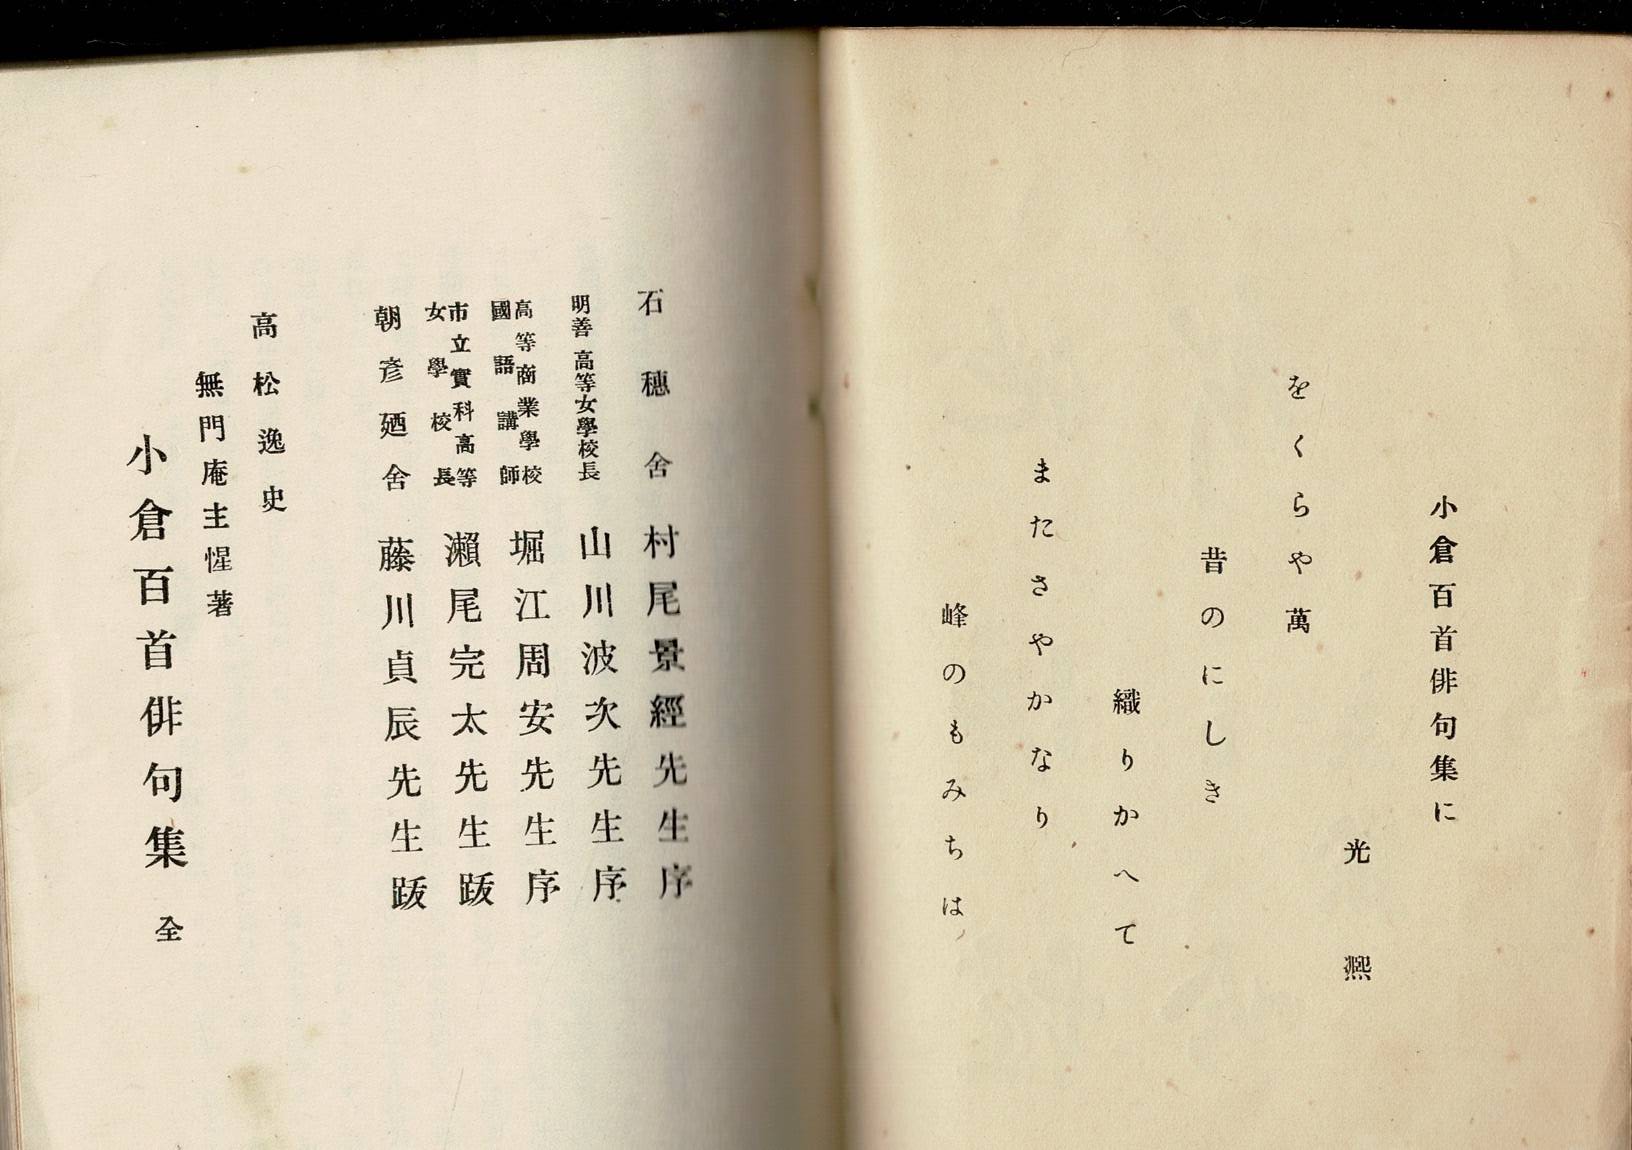 小倉百首俳句集に
光熙
をくらや萬
昔のにしき
織りかへて
またさやかなり
峰のもみちは
石穗舍 村尾景經先生序
明善高等女學校長 山川波次先生序
高等商業學校國語講師 堀江周安先生序
市立實科高等女學校長 瀨尾完太先生跋
朝彦廼舍 藤川貞辰先生跋
高松逸史
無門庵主惺著
小倉百首俳句集 全